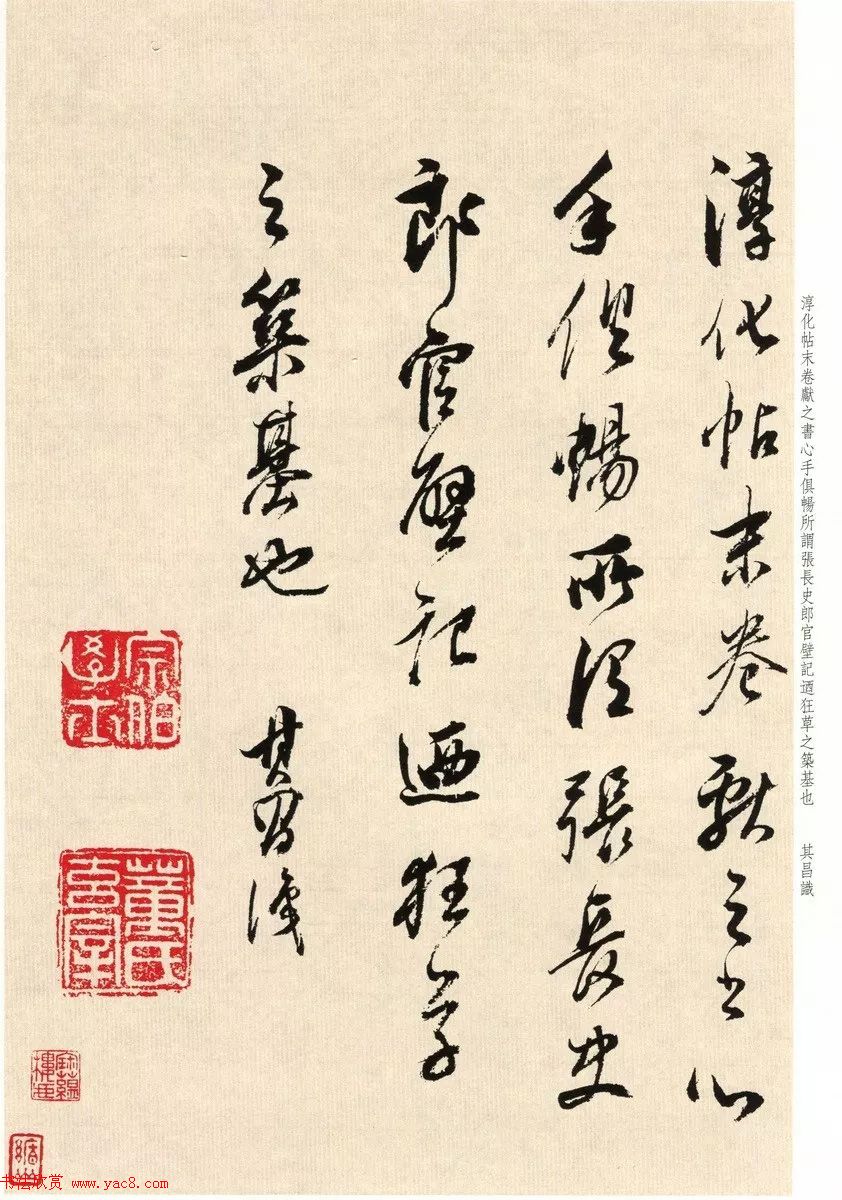 淳化帖末卷獻之書心
手俱暢所謂張長史
郎官壁記迺狂草
之築基也 其昌識
宗伯學士
董氏玄宰
淳化帖末卷獻之書心手俱暢所謂張長史郎官壁記迺狂草之築基也 其昌識
书法欣赏 www.yac8.com